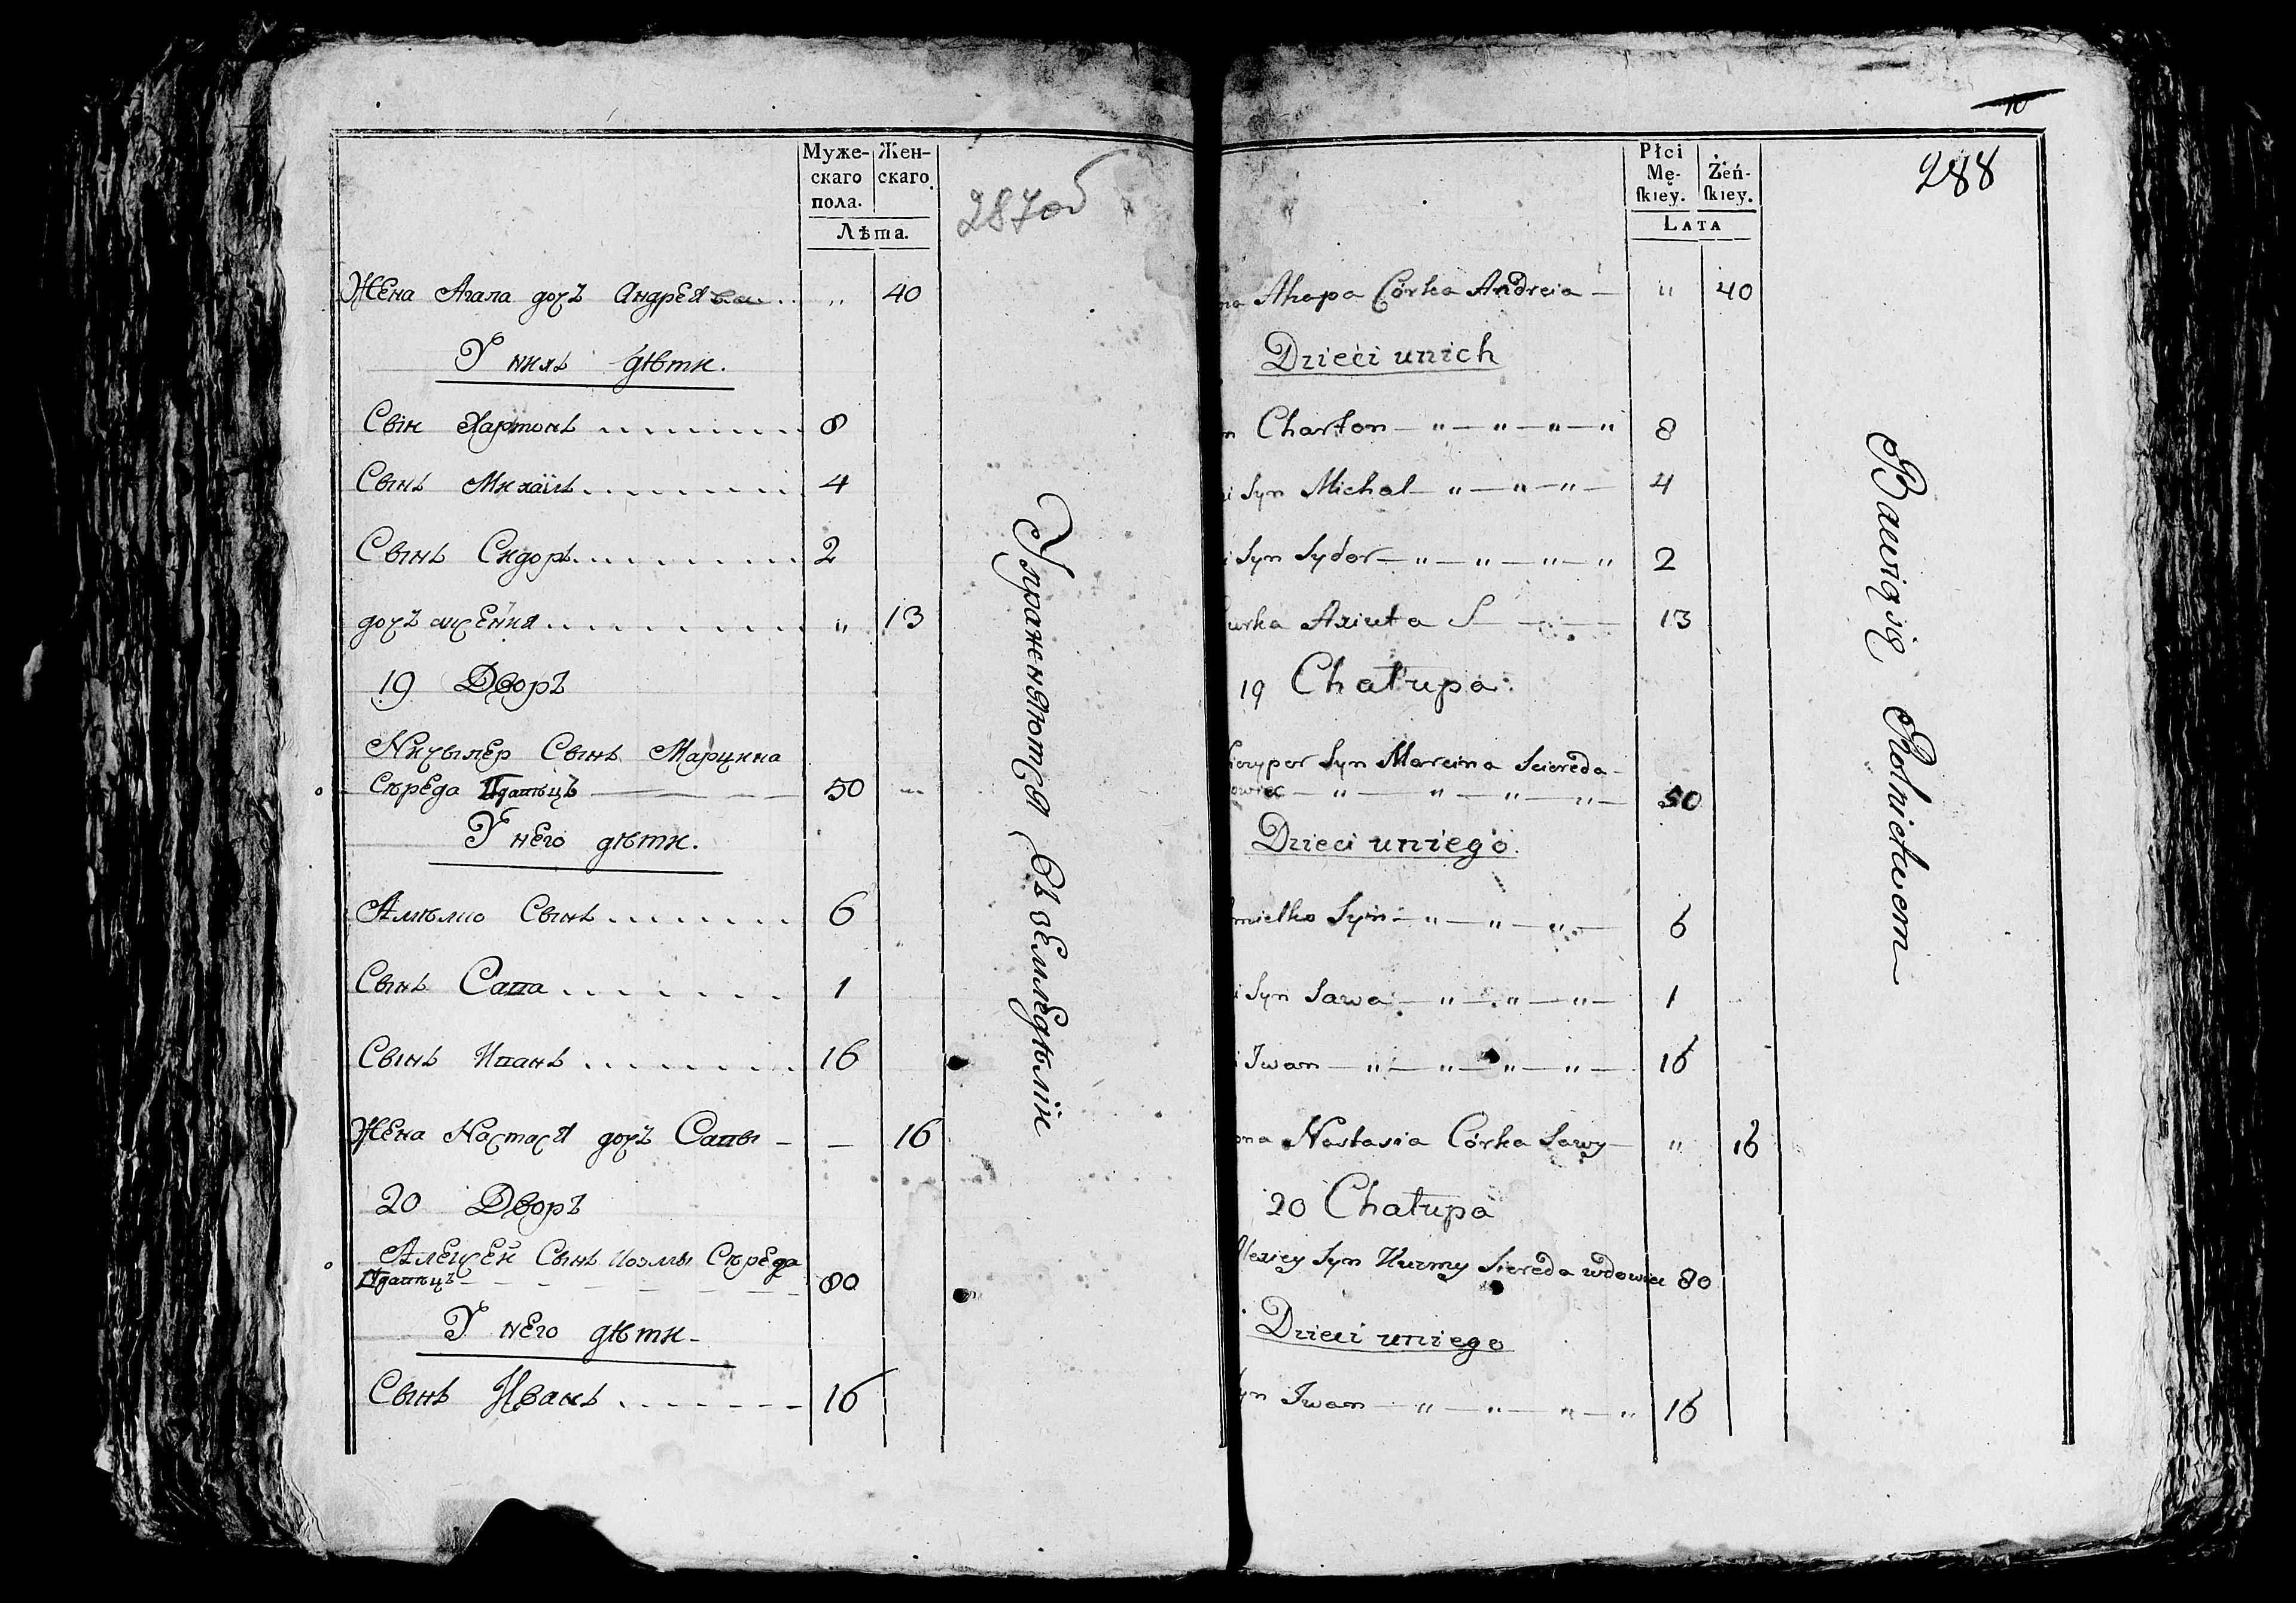 Муже- Жен-
скаго скаго.
пола.
Лѣта.
287об
Жена Агапа дочъ Андрея „ 40
У нихъ дѣти.
Сын Харитонъ 8
Сынъ Михаилъ 4
Сынъ Сидоръ 2
дочъ „ 13
19 Дворъ
Сынъ Марцина
Сѣреда 50
У него дѣти.
Сынъ 6
Сынъ Сапа 1
Сынъ Ипанъ 16
Жена Настася дочъ Сапы - — 16
20 Дворъ
Алексей Сынъ Сѣреда
80
У него дѣти -
Сынъ Иванъ 16
Упражняются въ земледѣліи
10
288
Płci
Mę- Żeń-
ſkiey. ſkiey.
LATA
na Ahapa Córka Andreia „ 40
Dzieci unich
n Charton 8
i Syn Michal 4
i Syn Sydor 2
urka Axiuta 13
19 Chałupa
Syn Marcina Sciereda
owiec 50
Dzieci uniego.
mielko Syn 6
i Syn Sawa 1
i Iwan 16
ona Nastasia Córka Sawy „ 16
20 Chałupa
lexiey Syn Kuzmy Siereda wdowiec 80
Dzieci uniego
yn Iwan 16
Bawią się Rolnictwem